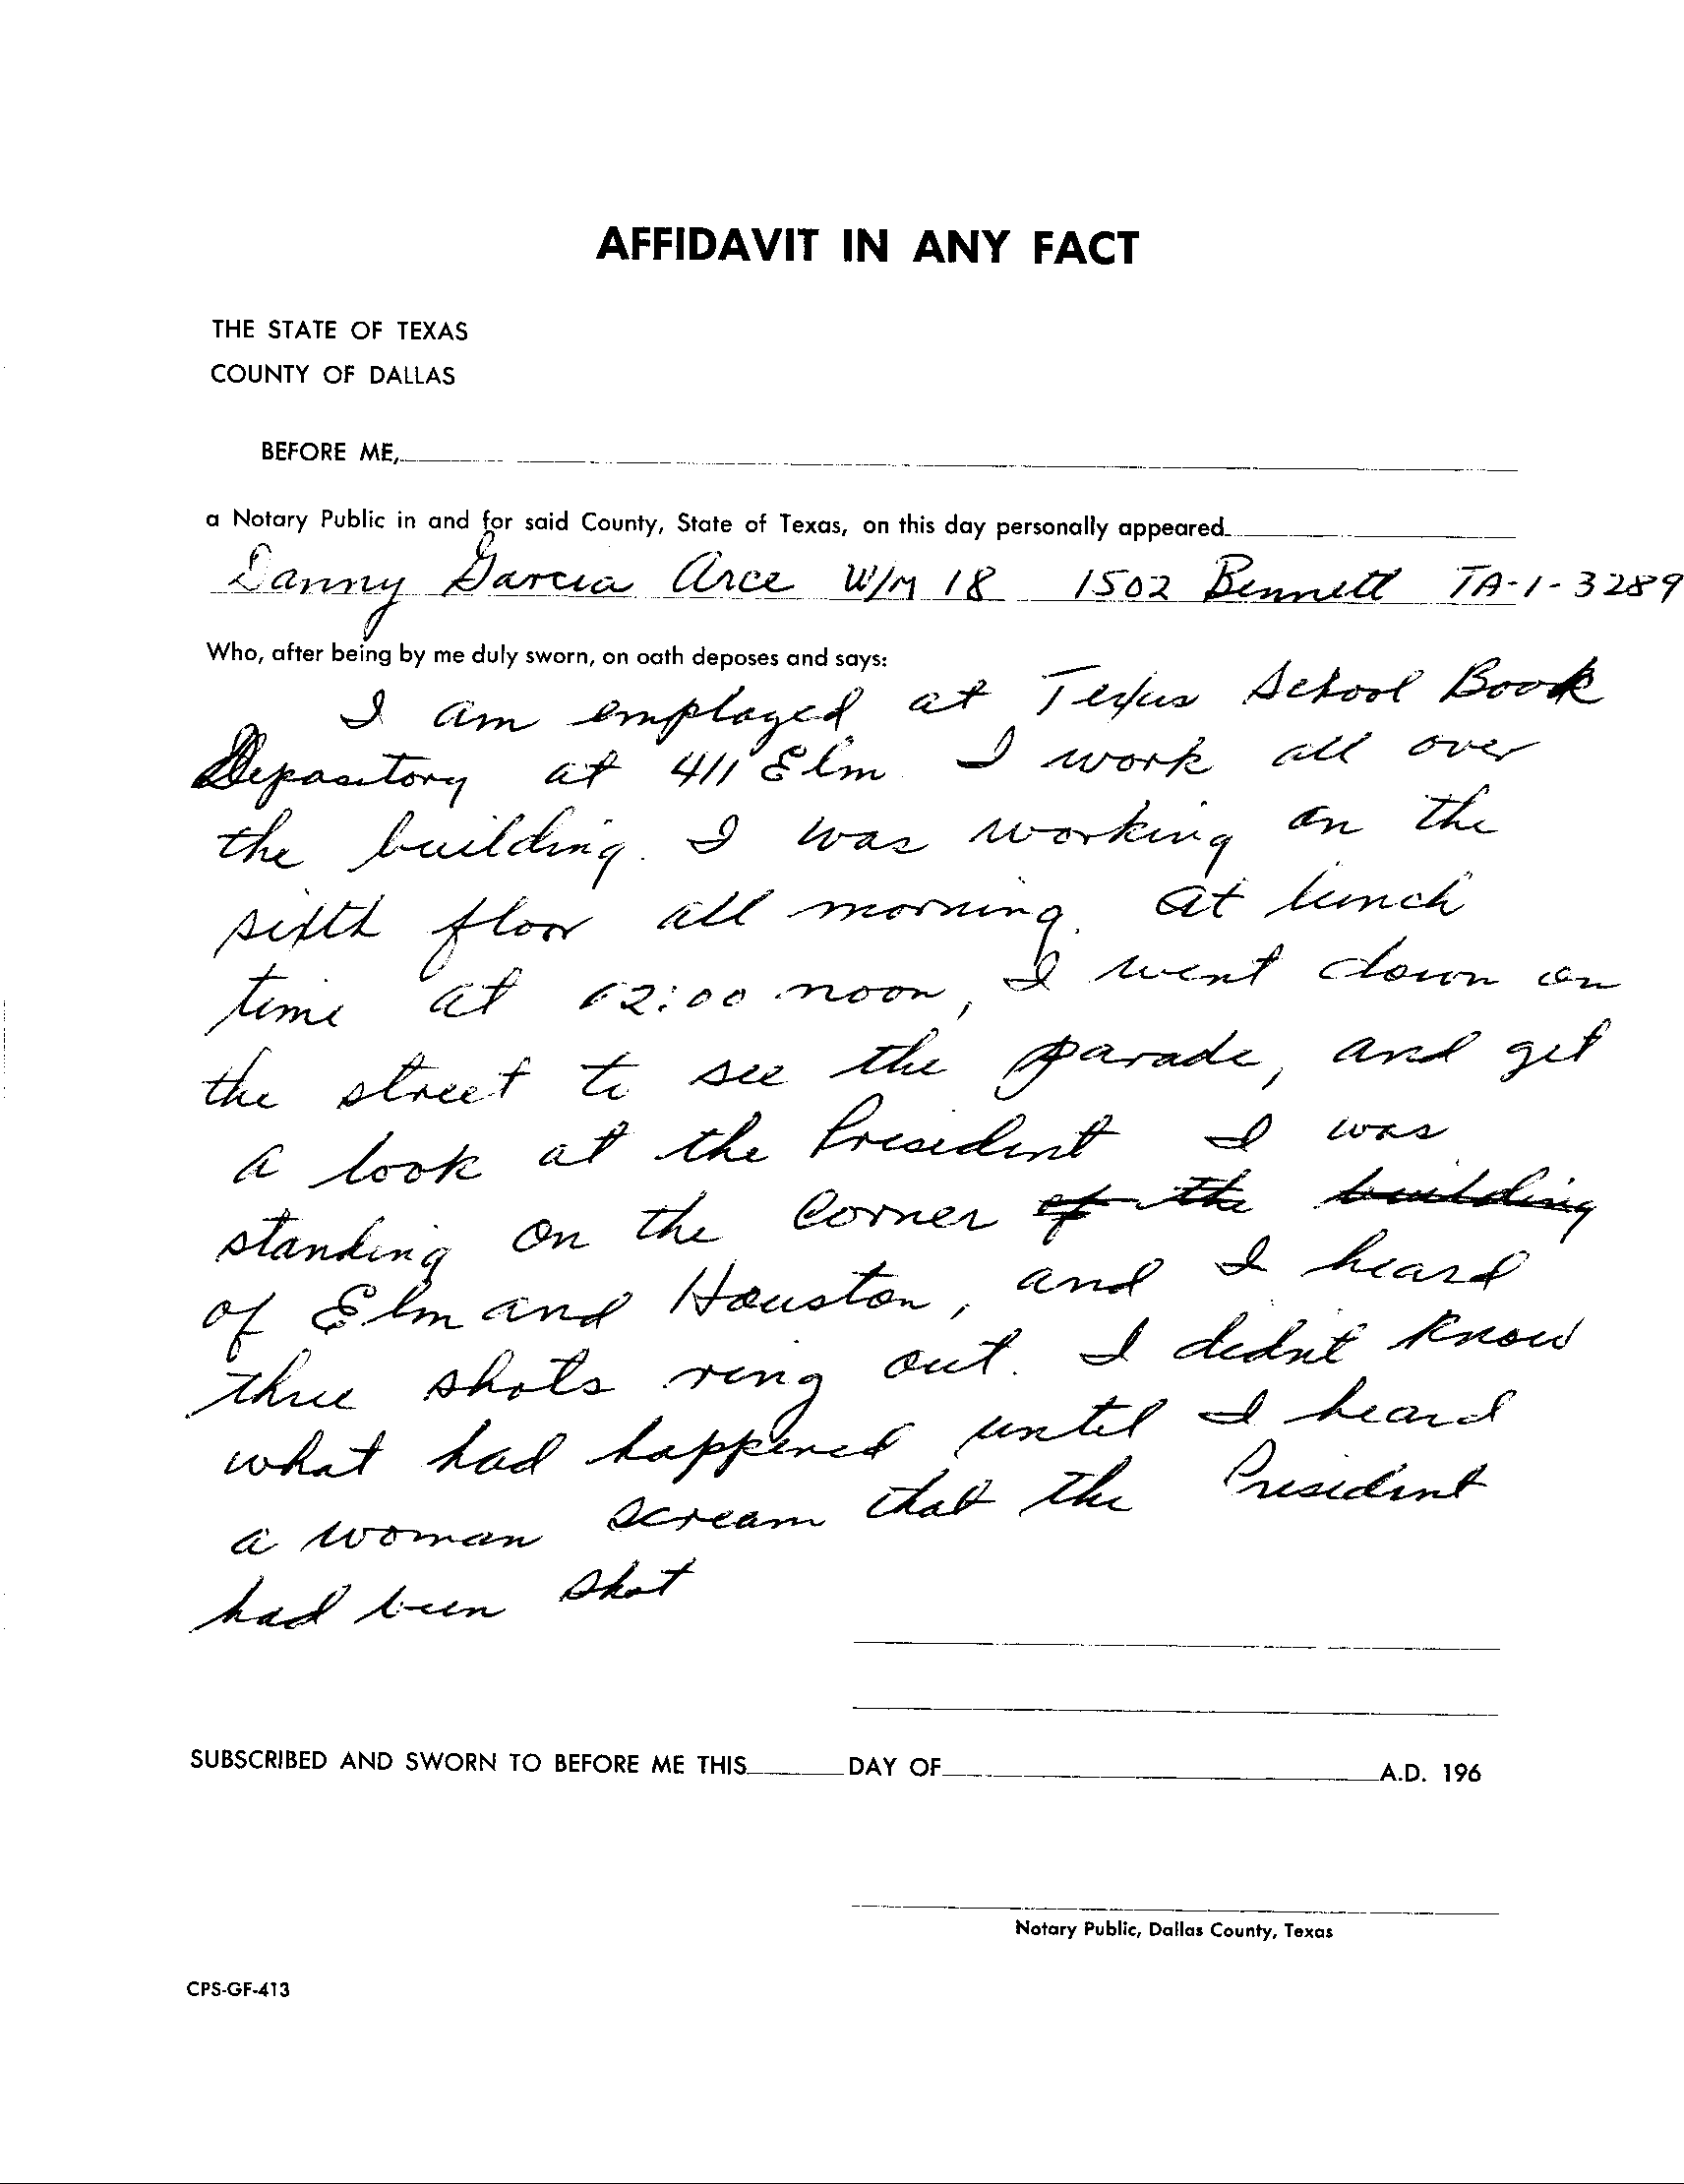 AFFIDAVIT IN ANY FACT
THE STATE OF TEXAS
COUNTY OF DALLAS
BEFORE ME,
a Notary Public in and for said County, State of Texas, on this day personally appeared
Danny Garcia Arce W/M 18 1502 Bennett TA-1-3289
Who, after being by me duly sworn, on oath deposes and says:
I am employed at Texas School Book
Depository at 411 Elm. I work all over
the building. I was working on the
sixth floor all morning. At lunch
time at 12:00 noon, I went down on
the street to see the parade, and get
a look at the President I was
standing on the Corner of the building
of Elm and Houston, and I heard
three shots ring out. I didn't know
what had happened until I heard
a woman scream that the President
had been shot
SUBSCRIBED AND SWORN TO BEFORE ME THIS DAY OF A.D. 196
Notary Public, Dallas County, Texas
CPS-GF-413